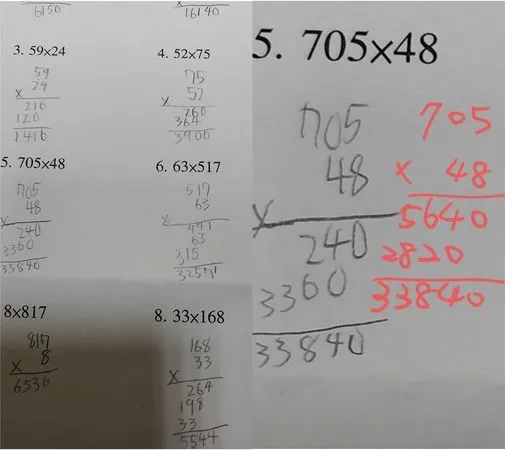 6150
16140
3. 59×24
59
24
×
216
120
1416
4. 52×75
75
52
×
260
364
3900
5. 705×48
705
48
×
240
3360
33840
6. 63×517
517
63
×
441
63
315
32571
8×817
817
× 8
6536
8. 33×168
168
33
×
264
198
33
5544
5. 705×48
705
48
×
240
3360
33840
705
× 48
5640
2820
33840